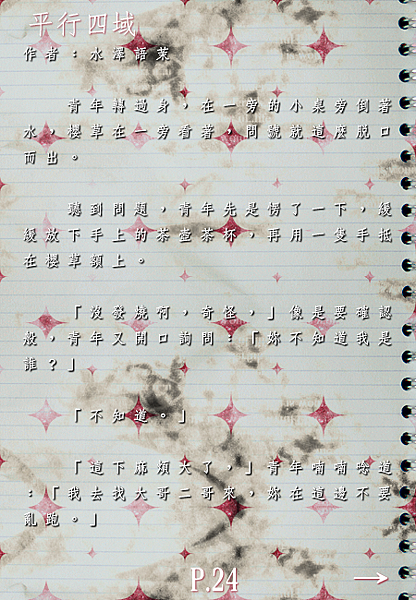 平行四域
作者：水澤語茉
青年轉過身，在一旁的小桌旁倒著
水，櫻草在一旁看著，問號就這麼脫口
而出。
聽到問題，青年先是愣了一下，緩
緩放下手上的茶壺茶杯，再用一隻手抵
在櫻草額上。
「沒發燒啊，奇怪，」像是要確認
般，青年又開口詢問：「妳不知道我是
誰？」
「不知道。」
「這下麻煩大了，」青年喃喃唸道
：「我去找大哥二哥來，妳在這邊不要
亂跑。」
P.24